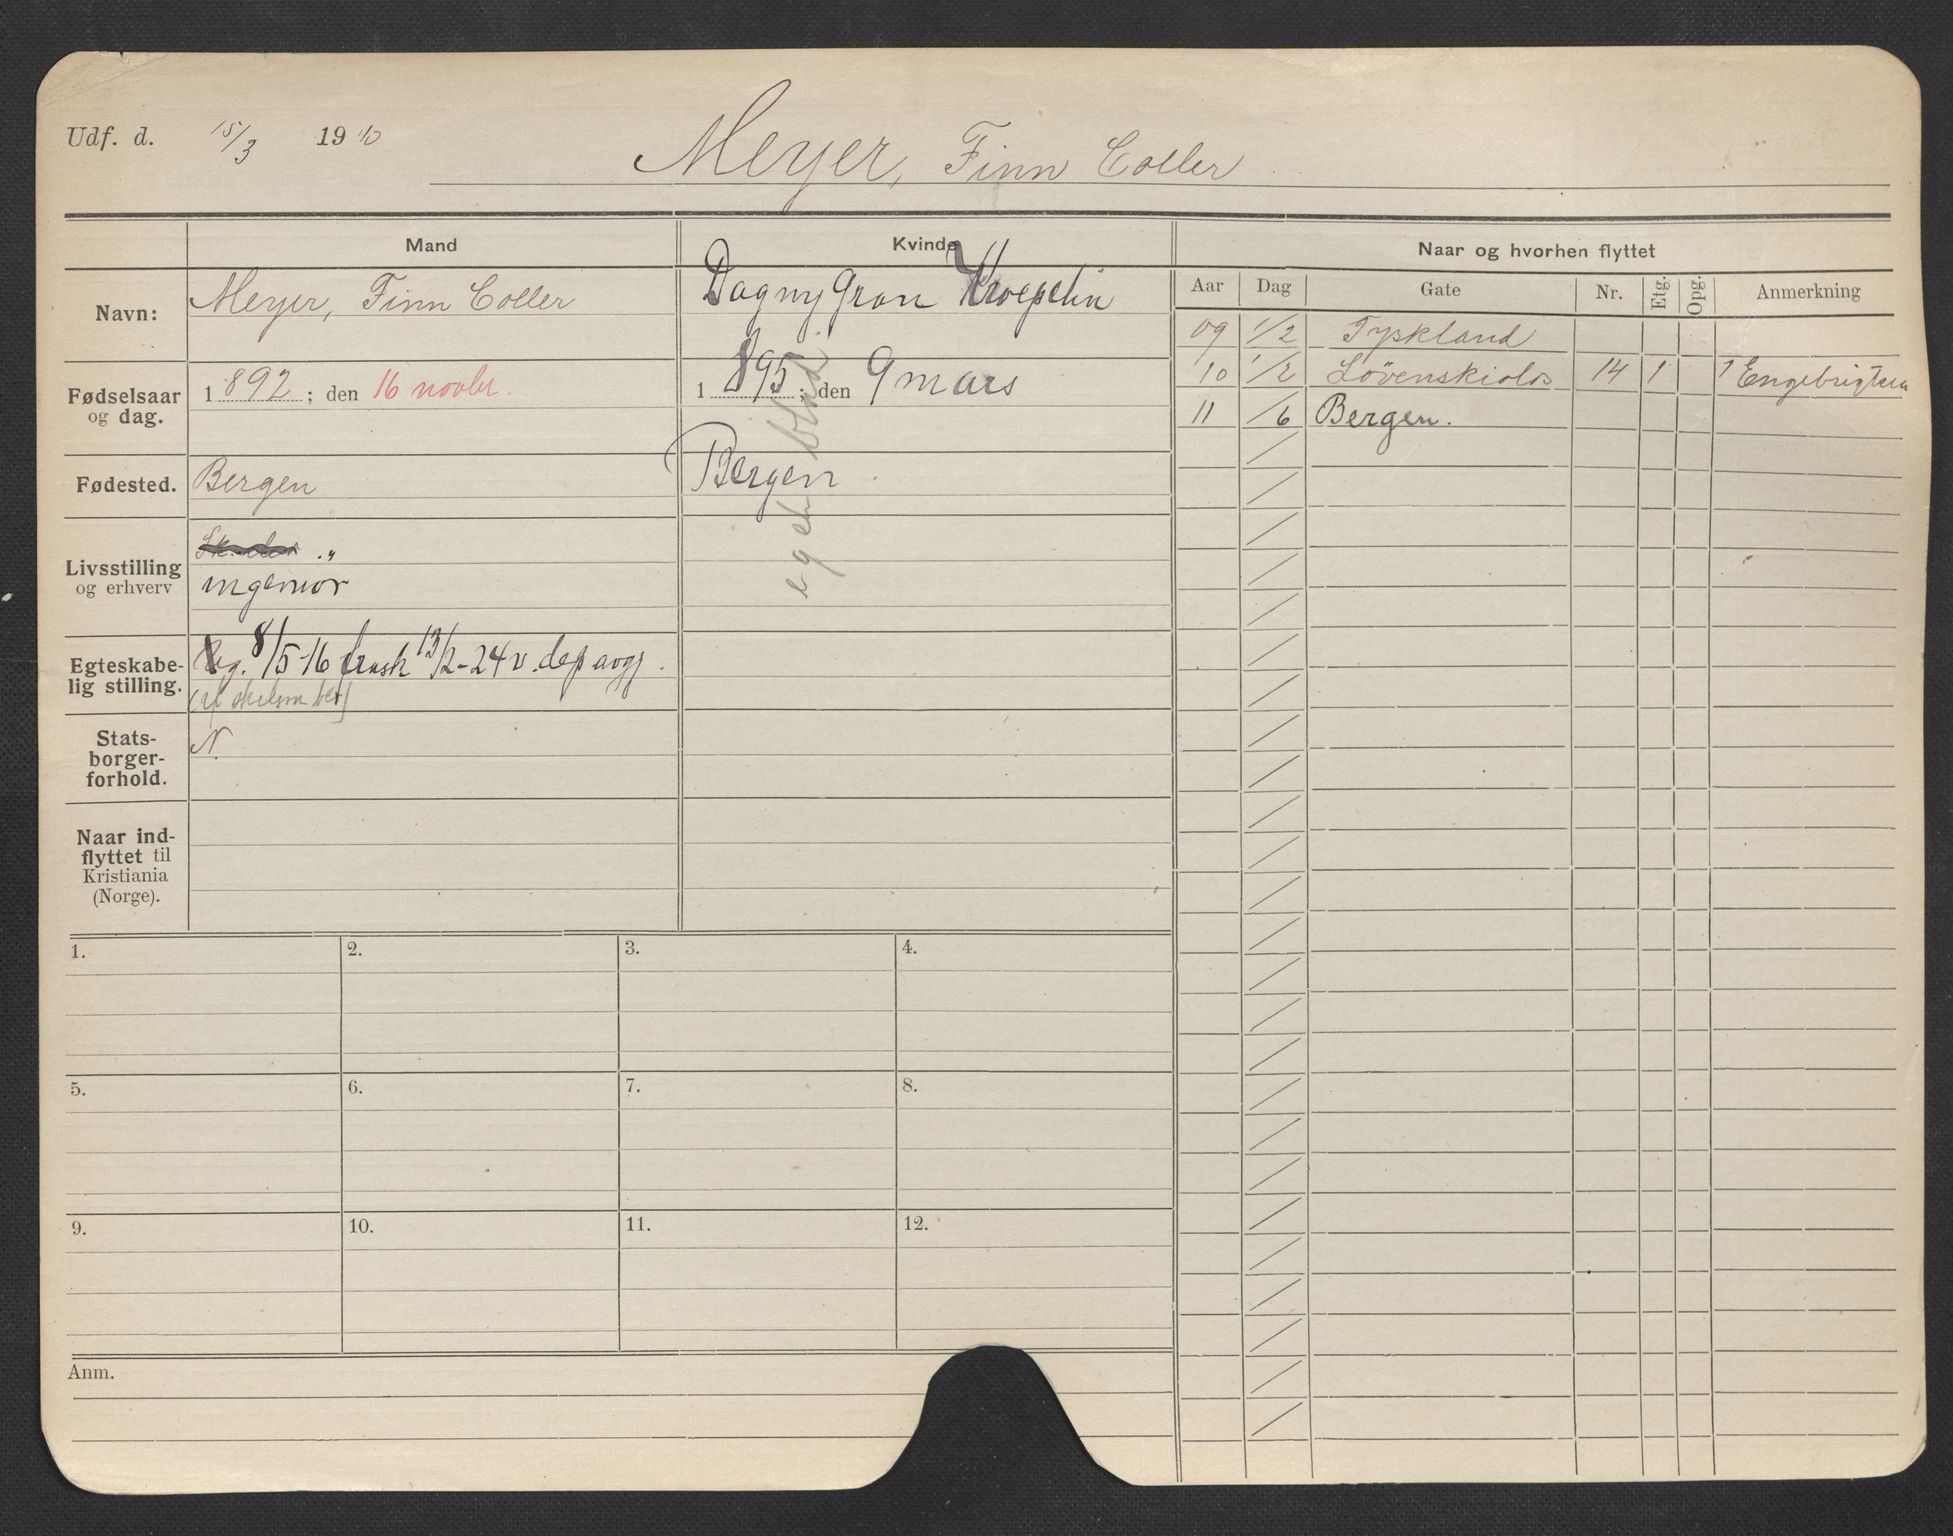 Udf. d. 15/3 1910
Meyer, Finn Coller
Mand
Kvinde
Naar og hvorhen flyttet
Navn:
Meyer, Finn Coller
Dagny Gran Kroepelin
Fødselsaar og dag.
1892; den 16 novbr.
1895; den 9 mars
Fødested.
Bergen
Bergen
Livsstilling og erhverv
ingeniør
eget blad
Egteskabelig stilling.
g. 8/5-16 frask 13/2-24 v. dep avgj.
Statsborgerforhold.
N.
Naar indflyttet til Kristiania (Norge).
Aar Dag Gate Nr. Etg. Opg. Anmerkning
09 1/2 Tyskland
10 1/2 Løvenskiolds 14 1 Engebrigtsen
11 /6 Bergen.
1. 2. 3. 4.
5. 6. 7. 8.
9. 10. 11. 12.
Anm.